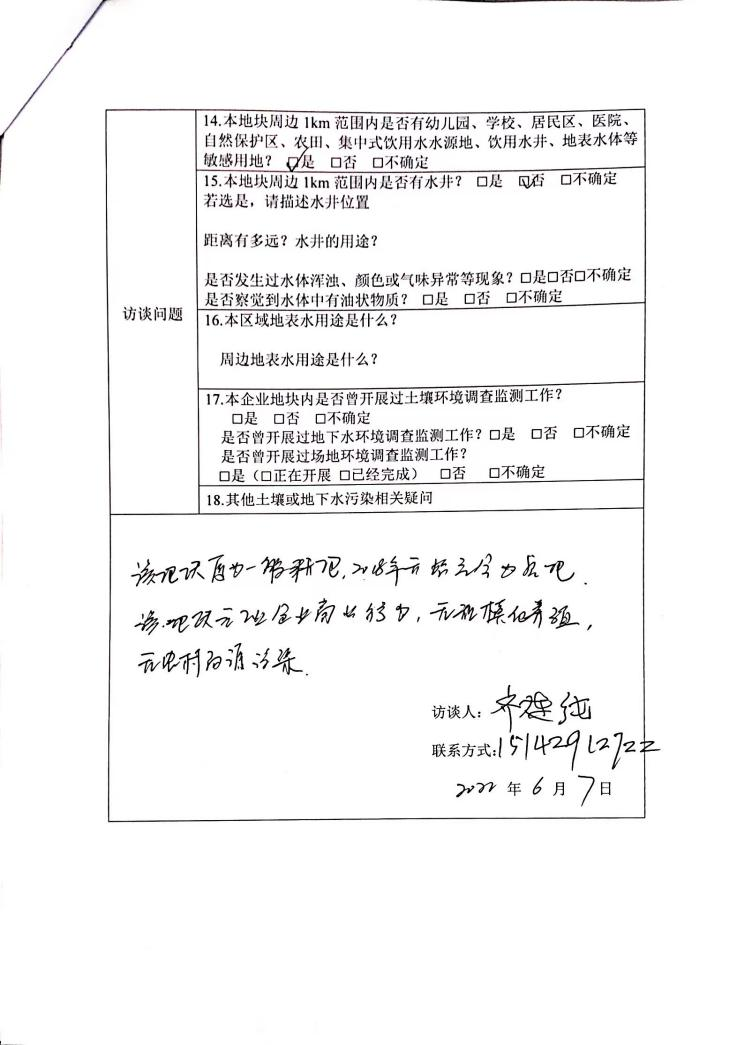 14.本地块周边 1km 范围内是否有幼儿园、学校、居民区、医院、
自然保护区、农田、集中式饮用水水源地、饮用水井、地表水体等
敏感用地？ ☑是 □否 □不确定
15.本地块周边 1km 范围内是否有水井？ □是 ☑否 □不确定
若选是，请描述水井位置
距离有多远？水井的用途？
是否发生过水体浑浊、颜色或气味异常等现象？□是□否□不确定
是否察觉到水体中有油状物质？ □是 □否 □不确定
访谈问题
16.本区域地表水用途是什么？
周边地表水用途是什么？
17.本企业地块内是否曾开展过土壤环境调查监测工作？
□是 □否 □不确定
是否曾开展过地下水环境调查监测工作？□是 □否 □不确定
是否曾开展过场地环境调查监测工作？
□是（□正在开展 □已经完成） □否 □不确定
18.其他土壤或地下水污染相关疑问
该地块原为一般耕地，2018年
该地块无工业企业商业行为，无规模化养殖，
污染.
访谈人：
联系方式:15142912722
2022 年 6 月 7 日